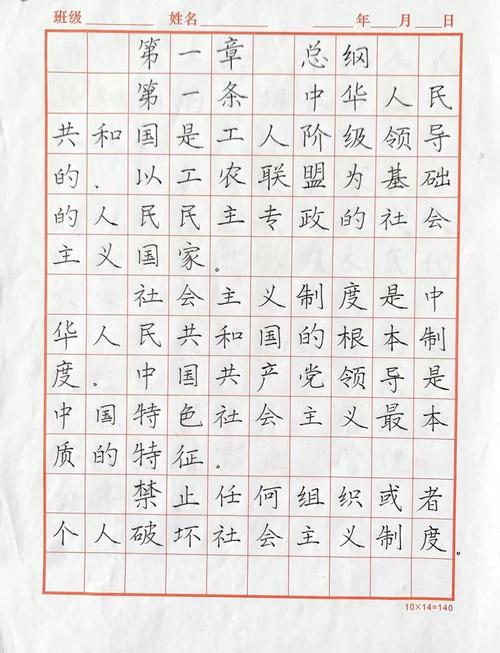 班级 姓名 年 月 日
第一章 总纲
第一条 中华人民
共和国是工人阶级领导
的、以工农联盟为基础
的人民民主专政的社会
主义国家。
社会主义制度是中
华人民共和国的根本制
度。中国共产党领导是
中国特色社会主义最本
质的特征。
禁止任何组织或者
个人破坏社会主义制度。
10×14=140